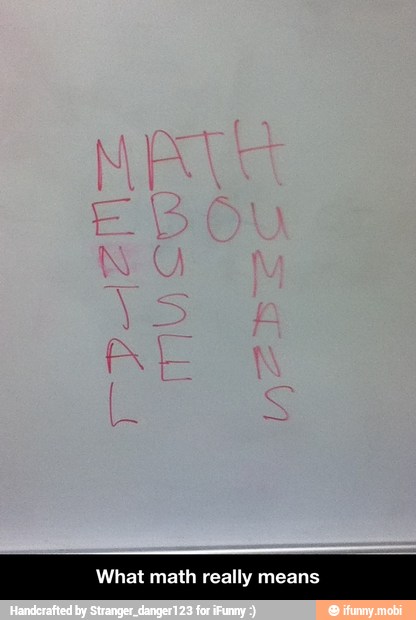 MATH
EBOU
NU M
TS A
AE N
L S
What math really means
Handcrafted by Stranger_danger123 for iFunny :)
ifunny.mobi